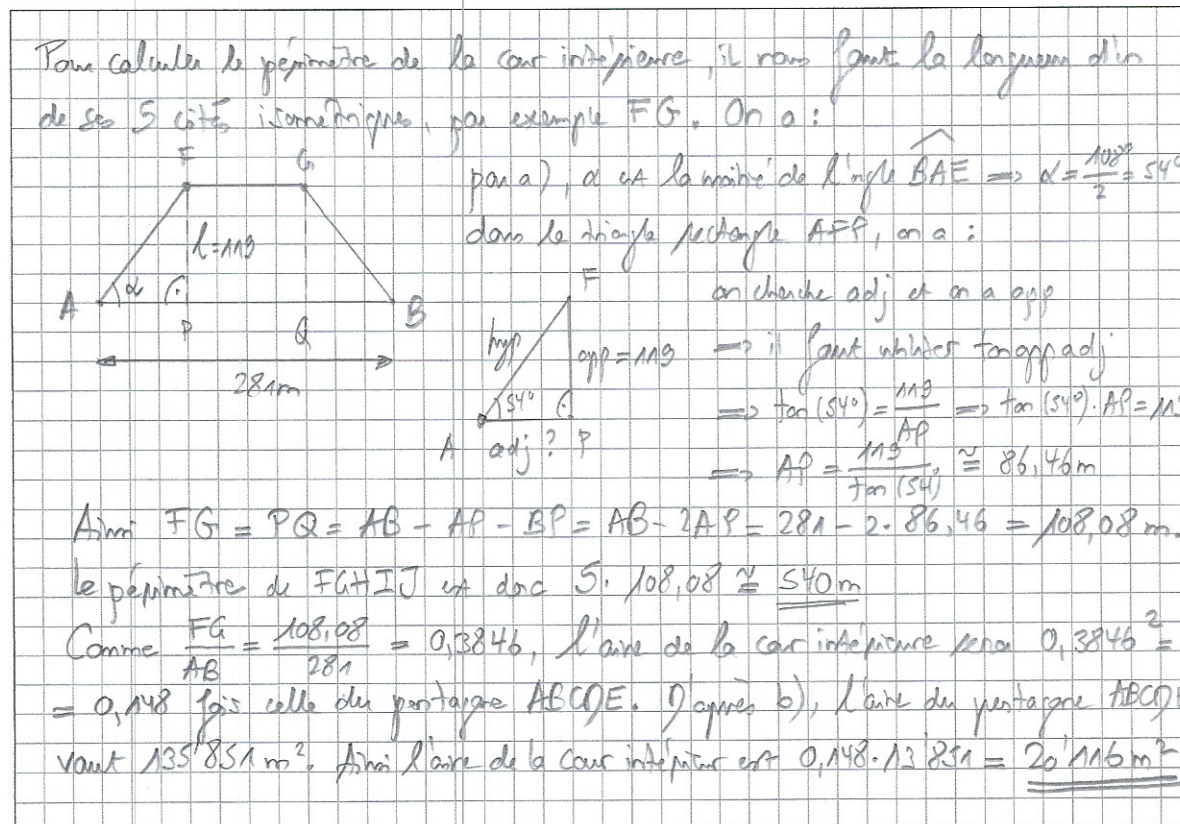 Pour calculer le périmètre de la cour intérieure, il nous faut la longueur d'un
de ses 5 côtés isométriques, par exemple FG. On a :
F G
par a), α est la moitié de l'angle BAE ⟹ α = 108°/2 = 54°
l=119
dans le triangle rectangle AFP, on a :
A α P Q B
F
on cherche adj et on a opp
281m
hyp opp = 119
⟹ il faut utiliser tan opp adj
54°
A adj ? P
⟹ tan (54°) = 119/AP ⟹ tan (54°) · AP = 119
⟹ AP = 119/tan (54) ≅ 86,46m
Ainsi FG = PQ = AB - AP - BP = AB - 2AP = 281 - 2 · 86,46 = 108,08 m.
Le périmètre de FGHIJ est donc 5 · 108,08 ≅ 540 m
Comme FG/AB = 108,08/281 = 0,3846, l'aire de la cour intérieure sera 0,3846² =
= 0,148 fois celle du pentagone ABCDE. D'après b), l'aire du pentagone ABCDE
vaut 135'851 m². Ainsi l'aire de la cour intérieur est 0,148 · 13'851 = 20'116 m²